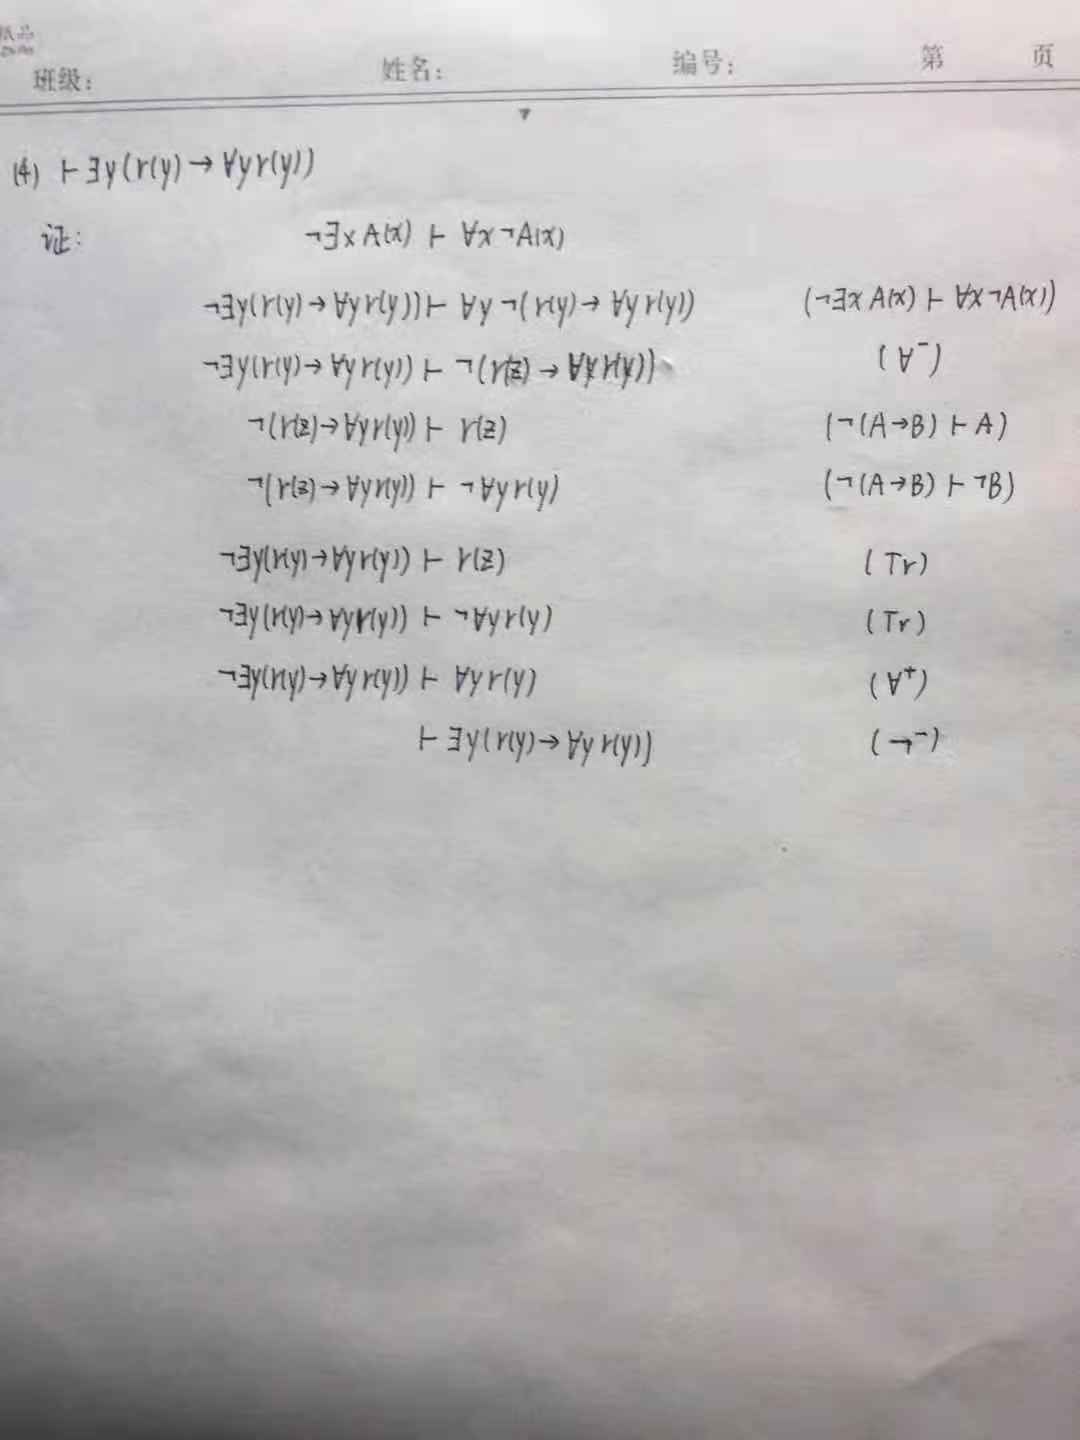 纸品
班级: 姓名: 编号: 第 页
(4) ⊢∃y(r(y)→∀yr(y))
证: ¬∃xA(x) ⊢ ∀x¬A(x)
¬∃y(r(y)→∀yr(y)) ⊢ ∀y¬(r(y)→∀yr(y)) (¬∃xA(x) ⊢ ∀x¬A(x))
¬∃y(r(y)→∀yr(y)) ⊢ ¬(r(z)→∀yr(y)) (∀⁻)
¬(r(z)→∀yr(y)) ⊢ r(z) (¬(A→B) ⊢ A)
¬(r(z)→∀yr(y)) ⊢ ¬∀yr(y) (¬(A→B) ⊢ ¬B)
¬∃y(r(y)→∀yr(y)) ⊢ r(z) (Tr)
¬∃y(r(y)→∀yr(y)) ⊢ ¬∀yr(y) (Tr)
¬∃y(r(y)→∀yr(y)) ⊢ ∀yr(y) (∀⁺)
⊢ ∃y(r(y)→∀yr(y)) (→⁻)